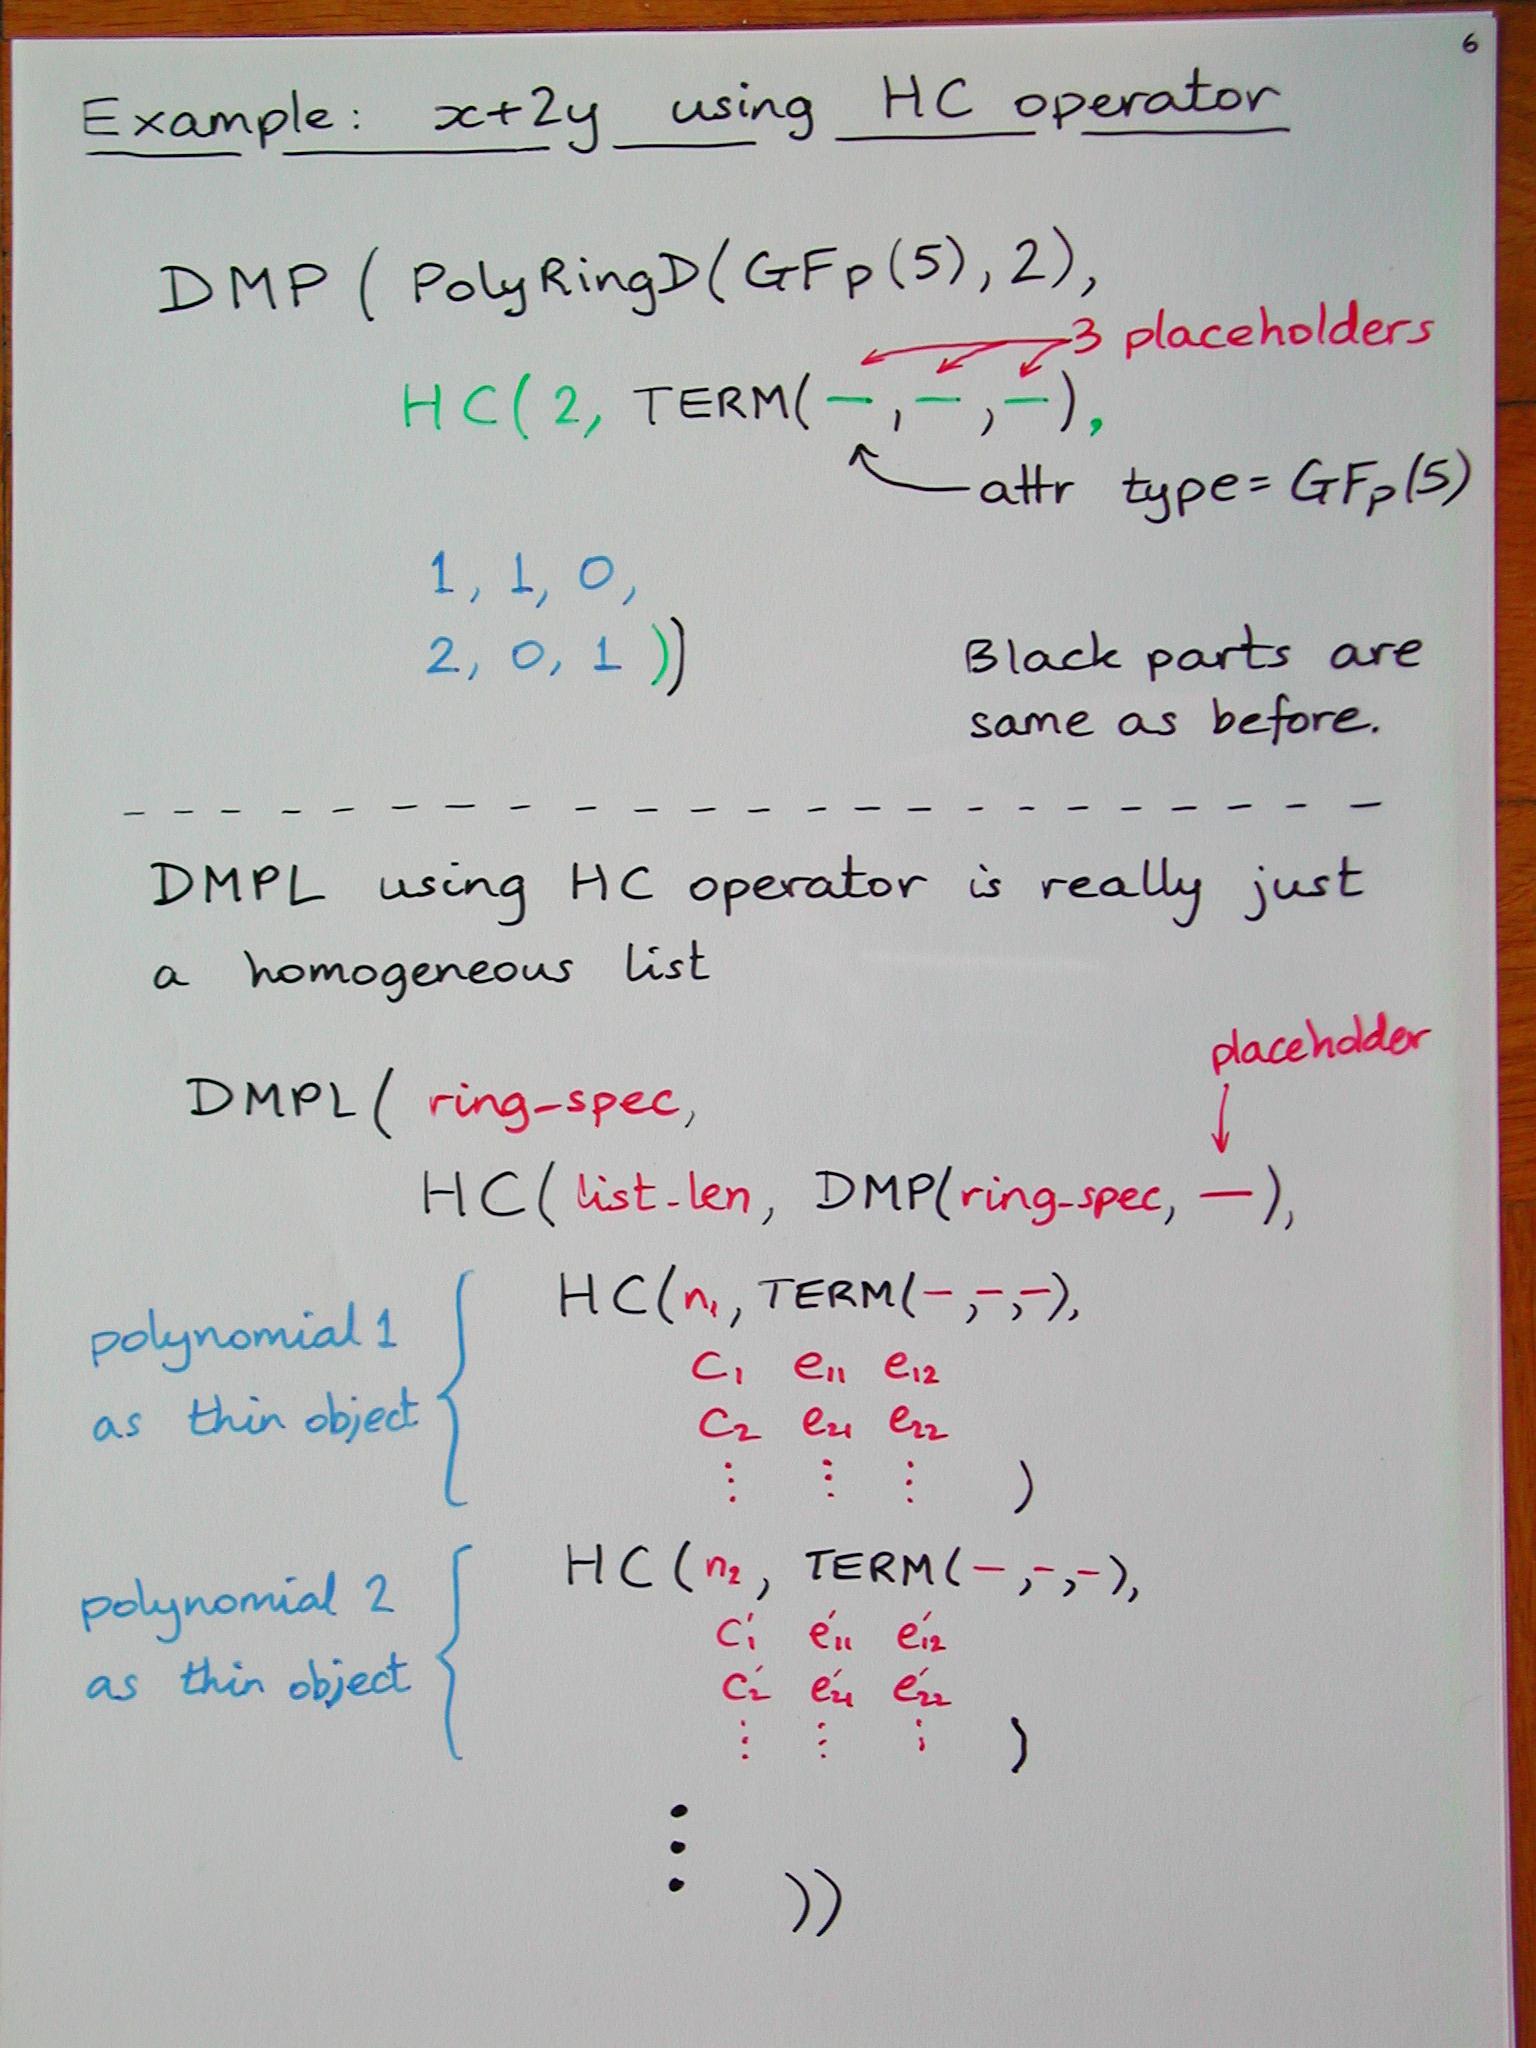 6
Example: x+2y using HC operator
DMP ( PolyRingD(GFp(5), 2),
3 placeholders
HC(2, TERM(—, —, —),
attr type = GFp(5)
1, 1, 0,
2, 0, 1 ))
Black parts are
same as before.
DMPL using HC operator is really just
a homogeneous list
placeholder
DMPL( ring-spec,
HC(list-len, DMP(ring-spec, —),
HC(n₁, TERM(—,—,—),
polynomial 1
c₁ e₁₁ e₁₂
as thin object
c₂ e₂₁ e₂₂
⋮ ⋮ ⋮ )
HC(n₂, TERM(—,—,—),
polynomial 2
c′₁ e′₁₁ e′₁₂
as thin object
c′₂ e′₂₁ e′₂₂
⋮ ⋮ ⋮ )
⋮
))